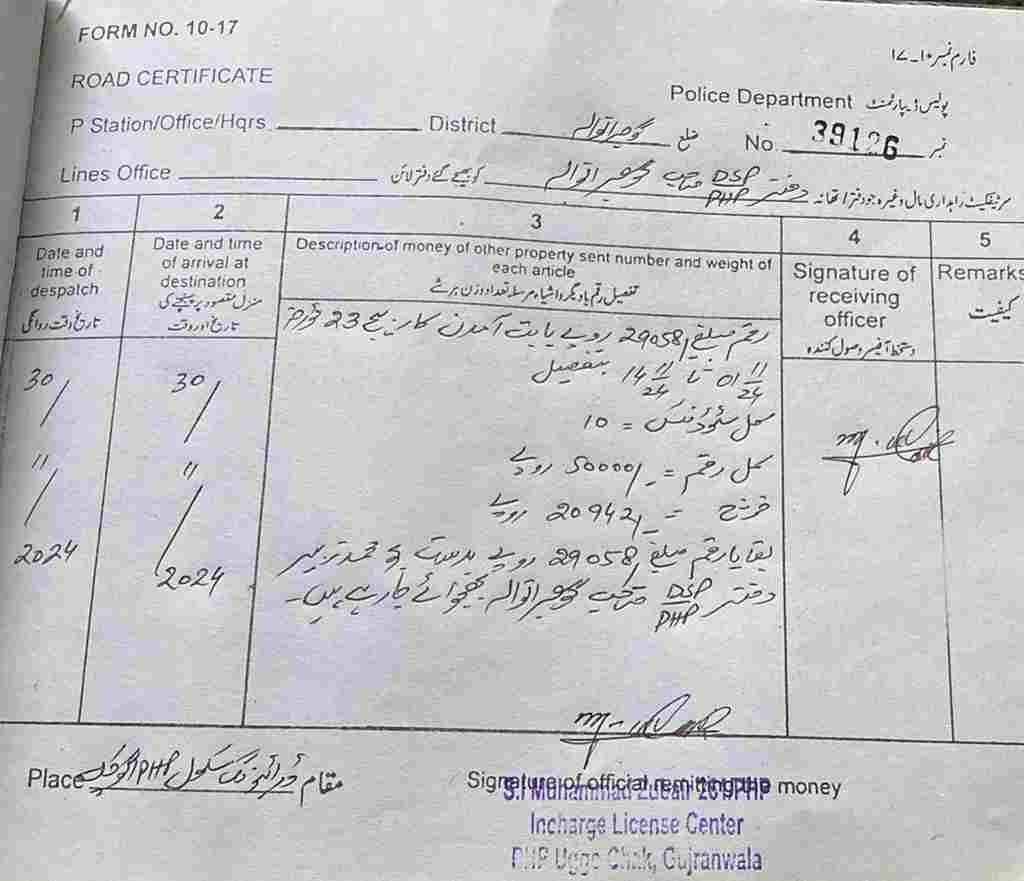 FORM NO. 10-17
فارم نمبر ۱۰-۱۷
ROAD CERTIFICATE
Police Department پولیس ڈیپارٹمنٹ
P Station/Office/Hqrs District گوجرانوالہ ضلع No. 39126 نمبر
Lines Office
سرٹیفکیٹ راہداری مال وغیرہ جو دفتر / تھانہ دفتر DSP/PHP صاحب گوجرانوالہ کو بھیجے گئے دفتر لائن
1 2 3 4 5
Date and time of despatch
تاریخ وقت روانگی
Date and time of arrival at destination
منزل مقصود پر پہنچنے کی
تاریخ اور وقت
Description of money of other property sent number and weight of each article
تفصیل رقم یا دیگر اشیاء مرسلہ تعداد وزن ہر شے
Signature of receiving officer
دستخط آفیسر وصول کنندہ
Remarks
کیفیت
30/11/2024
30/11/2024
رقم مبلغ 29058/ روپے بابت آمدن کار بیج 23 مورخہ
01 11/24 تا 14 11/24 بتفصیل
کل سٹوڈنٹس = 10
کل رقم = 50000/- روپے
خرچ = 20942/- روپے
بقایا رقم مبلغ 29058/ روپے بدست محمد زبیر
دفتر DSP/PHP صاحب گوجرانوالہ بھجوائے جا رہے ہیں۔
Place مقام ڈرائیونگ سکول PHP اگوچک
Signature of official remitting the money
S.I Muhammad Zubair 261/PHP
Incharge License Center
PHP Uggo Chak, Gujranwala